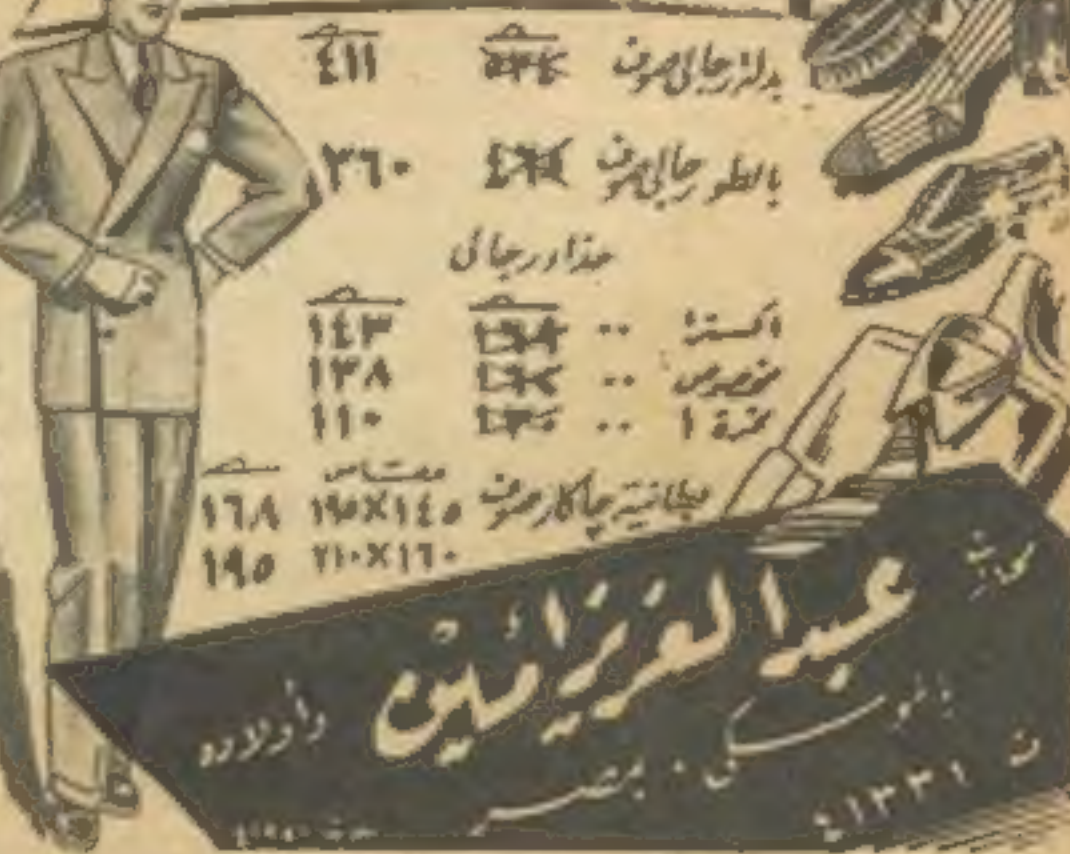 بدلة رجالى صوف ٥٣٤ ٤١١
بالطو رجالى صوف ٣٦٠
حذاء رجالى
اكسترا ٠٠ ١٤٣
مخصوص ٠٠ ١٣٨
نمرة ١ ٠٠ ١١٠
مقاس
بطانية چاكار صوف ١٤٥×١٩٥ ١٦٨
١٦٠×٢١٠ ١٩٥
محلات
عبدالعزيز امين
واولاده
بالموسكى . بمصر
ت ٤١٣٣١